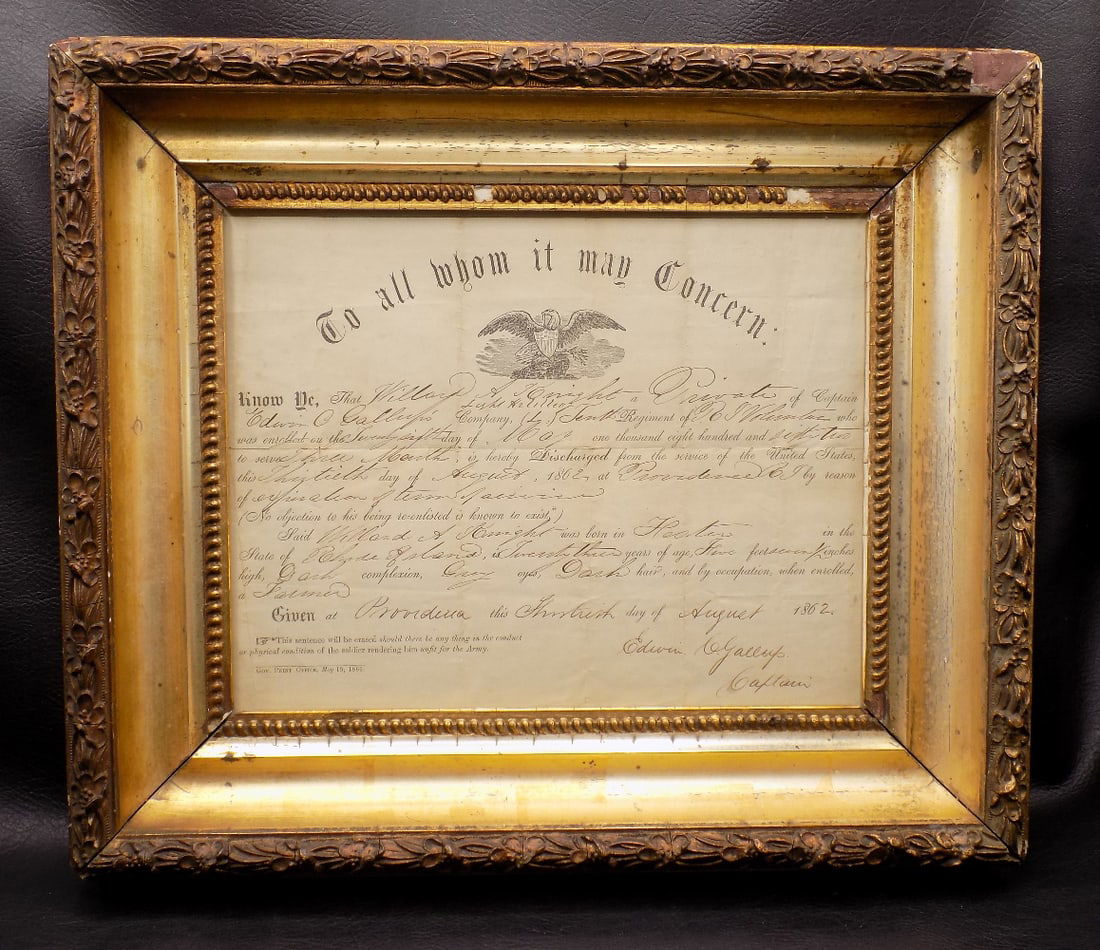 To all whom it may Concern:
Know Ye, That Willard A. Knight a Private of Captain
Light Battery
Edwin C Gallups Company, (L,) Tenth Regiment of R I Volunteers who
was enrolled on the Twenty sixth day of May one thousand eight hundred and sixty two
to serve Three Months, is hereby Discharged from the service of the United States,
this Thirtieth day of August, 1862, at Providence R I by reason
of expiration of term of service
(No objection to his being re-enlisted is known to exist.*)
Said Willard A Knight was born in in the
State of Rhode Island, is Twenty three years of age, Five feet seven inches
high, Dark complexion, Grey eyes, Dark hair, and by occupation, when enrolled,
a Farmer
Given at Providence this Thirtieth day of August 1862.
☞*This sentence will be erased should there be any thing in the conduct
or physical condition of the soldier rendering him unfit for the Army.
Edwin C Gallup
Gov. Print Office, May
Captain